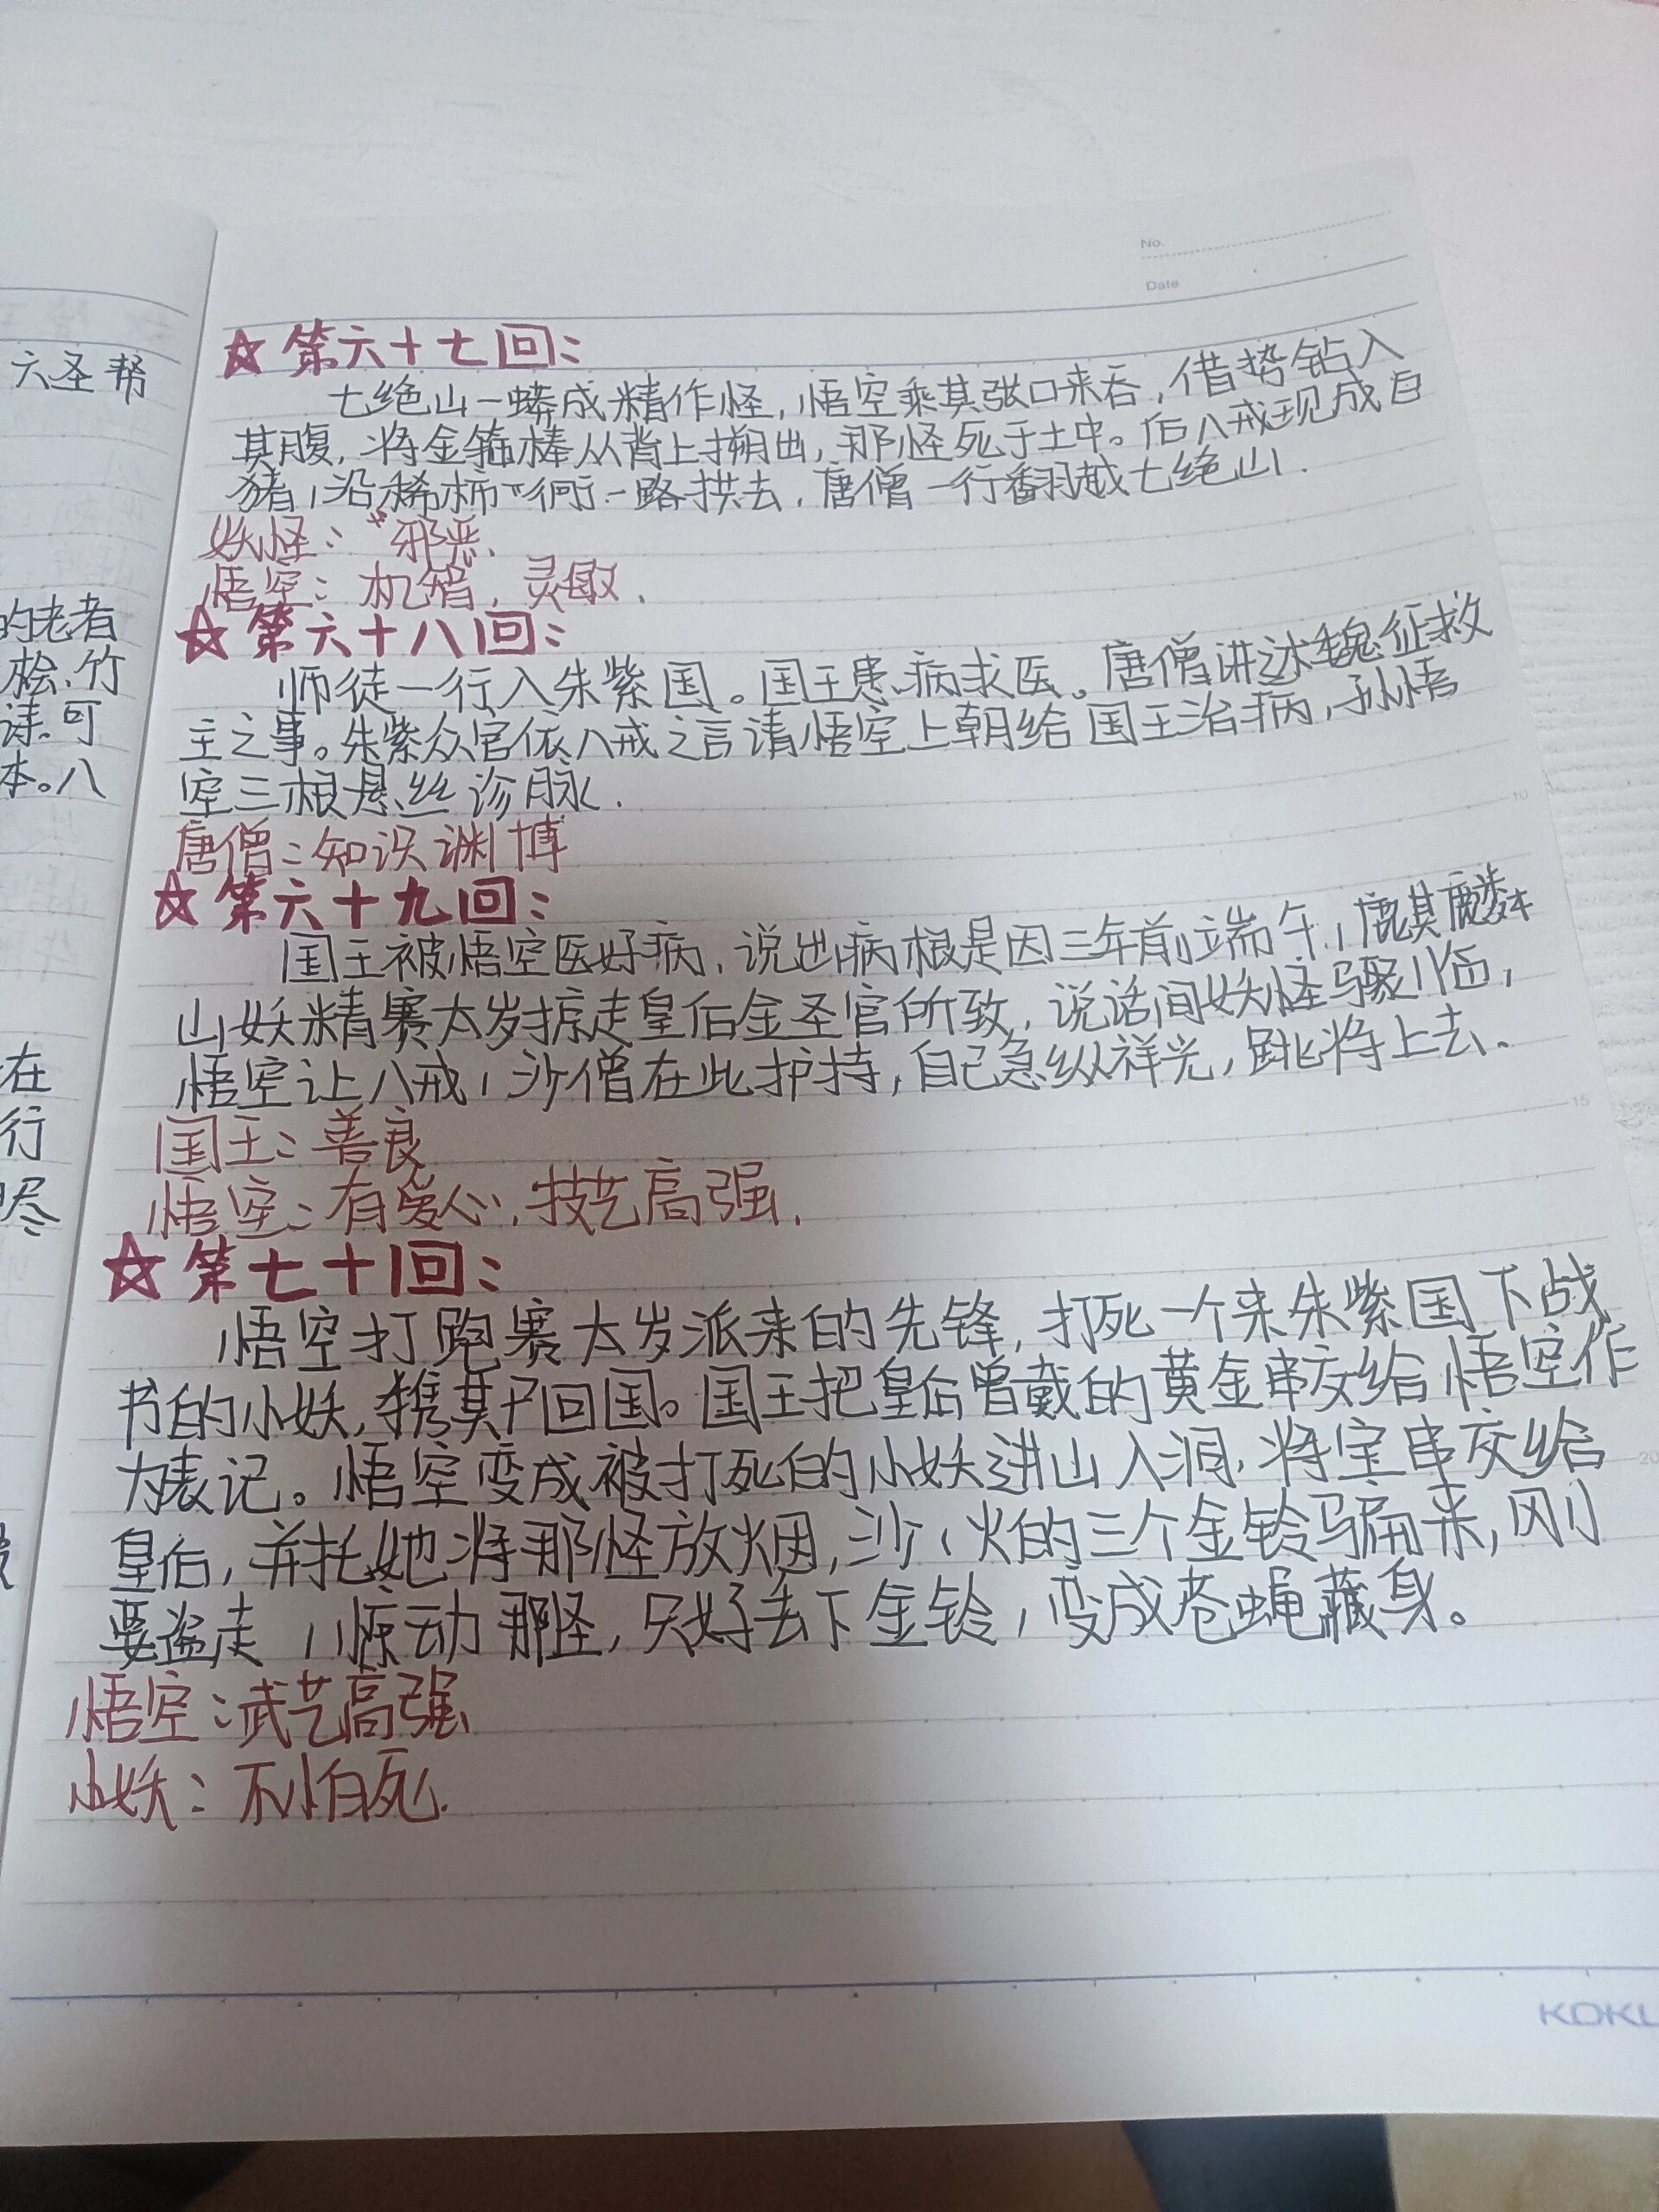 六圣帮
的老者
桧、竹
读.可
本。八
在
行
尽
No.
Date
☆第六十七回:
七绝山一蟒成精作怪,悟空乘其张口来吞,借势钻入
其腹,将金箍棒从背上搠出,那怪死于土中。后八戒现成白
猪,沿稀柿衕一路拱去,唐僧一行翻越七绝山.
妖怪:邪恶.
悟空:机智,灵敏.
☆第六十八回:
师徒一行入朱紫国。国王患病求医。唐僧讲述魏征救
主之事。朱紫众官依八戒之言请悟空上朝给国王治病,孙悟
空三根悬丝诊脉.
唐僧:知识渊博
☆第六十九回:
国王被悟空医好病,说出病根是因三年前端午,麒麟
山妖精赛太岁掠走皇后金圣宫所致,说话间妖怪骤临,
悟空让八戒,沙僧在此护持,自己急纵祥光,跳将上去.
国王:善良
悟空:有爱心,技艺高强.
☆第七十回:
悟空打跑赛太岁派来的先锋,打死一个来朱紫国下战
书的小妖,携其尸回国。国王把皇后曾戴的黄金串交给悟空作
为表记。悟空变成被打死的小妖进山入洞,将宝串交给
皇后,并托她将那怪放烟,沙,火的三个金铃骗来,刚
要盗走,惊动那怪,只好丢下金铃,变成苍蝇藏身。
悟空:武艺高强
小妖:不怕死.
10
15
20